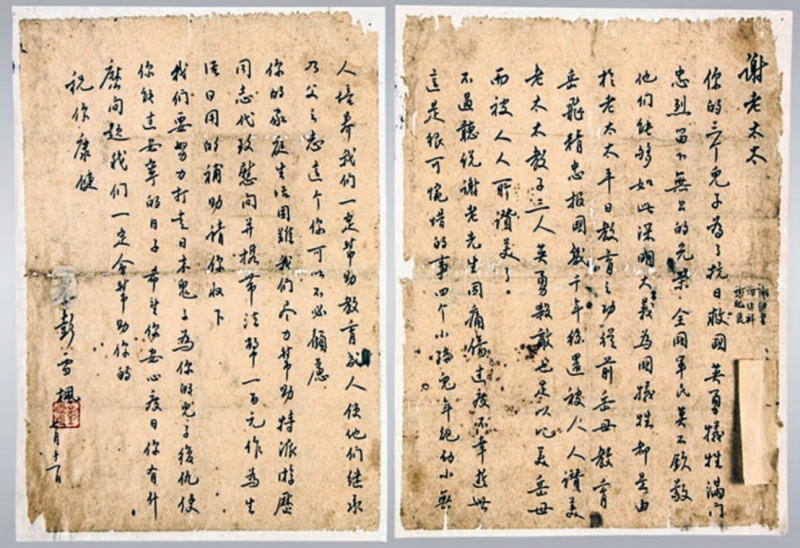 谢老太太
你的三个儿子为了抗日救国英勇牺牲满门
忠烈留下無上的光荣全国军民莫不钦敬
他们能够如此深明大義為国犠牲都是由
於老太太平日教育之功从前岳母教育
岳飛精忠报国几千年後還被人人讚美
老太太教子三人英勇殺敵也足以比美岳母
而被人人所讚美了。
不过聽说谢老先生因痛傷过度不幸逝世
這是很可惋惜的事四个小孫兒年纪幼小無
人培养我们一定帮助教育成人使他们继承
乃父之志這个你可以不必顧慮
你的家庭生活困難我们尽力帮助特派游歷
同志代致慰问并携带法幣一百元作為生
活日用的補助請你收下
我们要努力打走日本鬼子為你的兒子復仇使
你能过安寧的日子希望你安心度日你有什
麽问题我们一定会帮助你的
祝你康健
彭雪楓
七月十一日